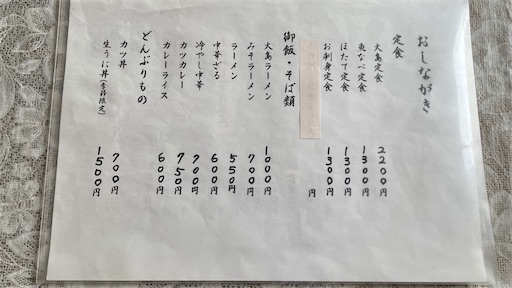 おしながき
定食
大島定食 2200円
魚なべ定食 1300円
ほたて定食 1300円
お刺身定食 1300円
円
御飯・そば類
大島ラーメン 1000円
みそラーメン 700円
ラーメン 550円
中華ざる 600円
冷やし中華 700円
カツカレー 750円
カレーライス 600円
どんぶりもの
カツ丼 700円
生うに丼(季節限定) 1500円